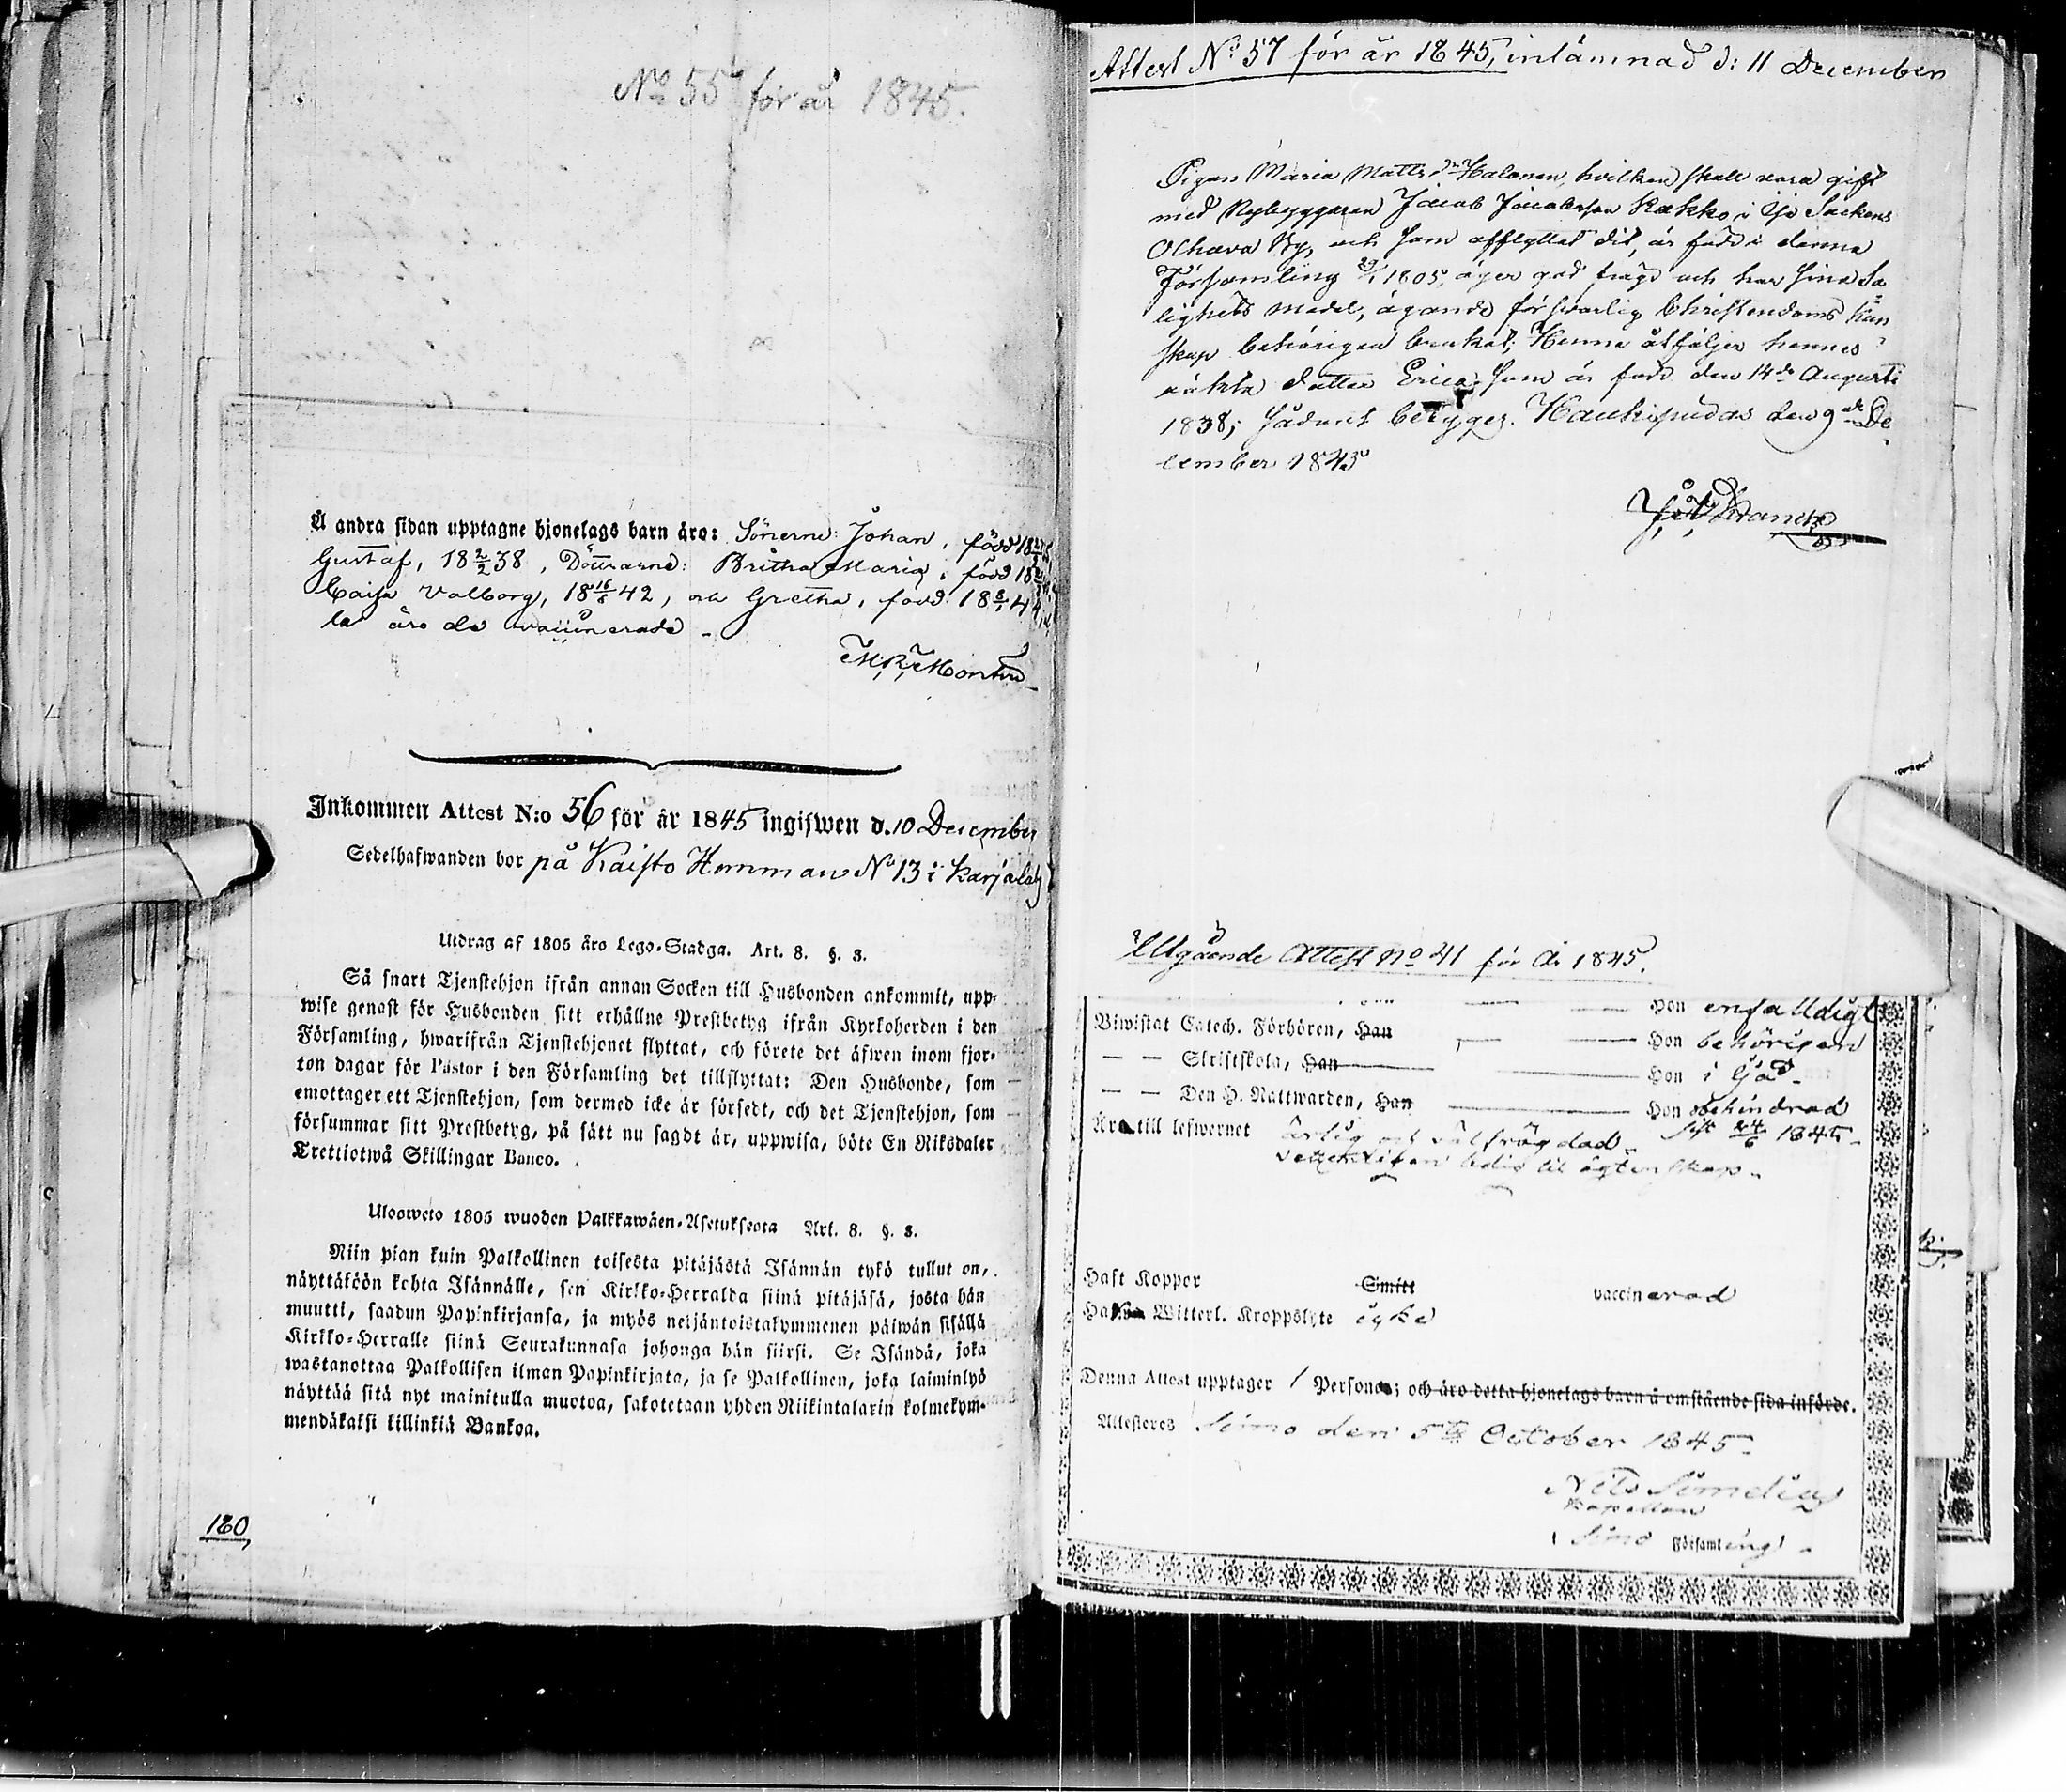 No 55 för år 1845.
Å andra sidan upptagne hjonelags barn äro: Sönerne: Johan, född 18
Gustaf, 18 2/2 38, Döttrarne: Britha Maria, född 18
Caisa Valborg, 18 16/6 42, och Gretha, född 18 8/1 44,
la äro de vaccinerade
Inkommen Attest N:o 56 för år 1845 ingifwen d. 10 December
Sedelhafwanden bor på Kaisto Hemman No 13 i Karjala
Utdrag af 1805 års Lego-Stadga. Art. 8. §. 3.
Så snart Tjenstehjon ifrån annan Socken till Husbonden ankommit, upp-
wise genast för Husbonden sitt erhållne Prestbetyg ifrån Kyrkoherden i den
Församling, hwarifrån Tjenstehjonet flyttat, och förete det äfwen inom fjor-
ton dagar för Pastor i den Församling det tillflyttat: Den Husbonde, som
emottager ett Tjenstehjon, som dermed icke är försedt, och det Tjenstehjon, som
försummar sitt Prestbetyg, på sätt nu sagdt är, uppwisa, böte En Riksdaler
Trettiotwå Skillingar Banco.
Ulosweto 1805 wuoden Palkkawäen-Asetuksesta Art. 8. §. 3.
Niin pian kuin Palkollinen toisesta pitäjästä Isännän tykö tullut on,
näyttäköön kohta Isännälle, sen Kirkko-Herralda siinä pitäjäsä, josta hän
muutti, saadun Papinkirjansa, ja myös neljäntoistakymmenen päiwän sisällä
Kirkko-Herralle siinä Seurakunnasa johonga hän siirsi. Se Isändä, joka
wastanottaa Palkollisen ilman Papinkirjata, ja se Palkollinen, joka laiminlyö
näyttää sitä nyt mainitulla muotoa, sakotetaan yhden Riikintalarin kolmekym-
mendäkaksi killinkiä Bankoa.
180
Attest No 57 för år 1845, inlämnad d: 11 December
Pigan Maria Mattsdr Halonen, hvilken skall vara gift
med Nybyggaren Jacob Jacobsson Kakko i Ijo Sockens
Olhava By, och som afflyttat dit, är född i denna
Församling 1805, äger god frägd och har sina Sa-
lighets medel, ägande försvarlig Christendoms kun-
skap behörigen brukat; Henne åtföljer hennes
oäkta dotter Erica som är född den 14de Augusti
1838; sådant betygas. Haukipudas den 9de De-
cember 1845
Utgående Attest No 41 för år 1845.
Hon enfalldigt
Biwistat Catech. Förhören, Han — Hon behörigen
— — Skriftskola, Han — Hon i Ijo
— — Den H. Nattwarden, Han — Hon obehindrad
sist 24/6 1845
Är till lefwernet ärlig och välfrägdad
ledig til ägtenskap
Haft Koppor Smitt vaccinerad
Witterl. Kroppslyte icke
Denna Attest upptager 1 Person; och äro detta hjonelags barn å omstående sida införde.
Attesteres Simo den 5te October 1845
Nils Simelius
Kapellan
i Simo Församling